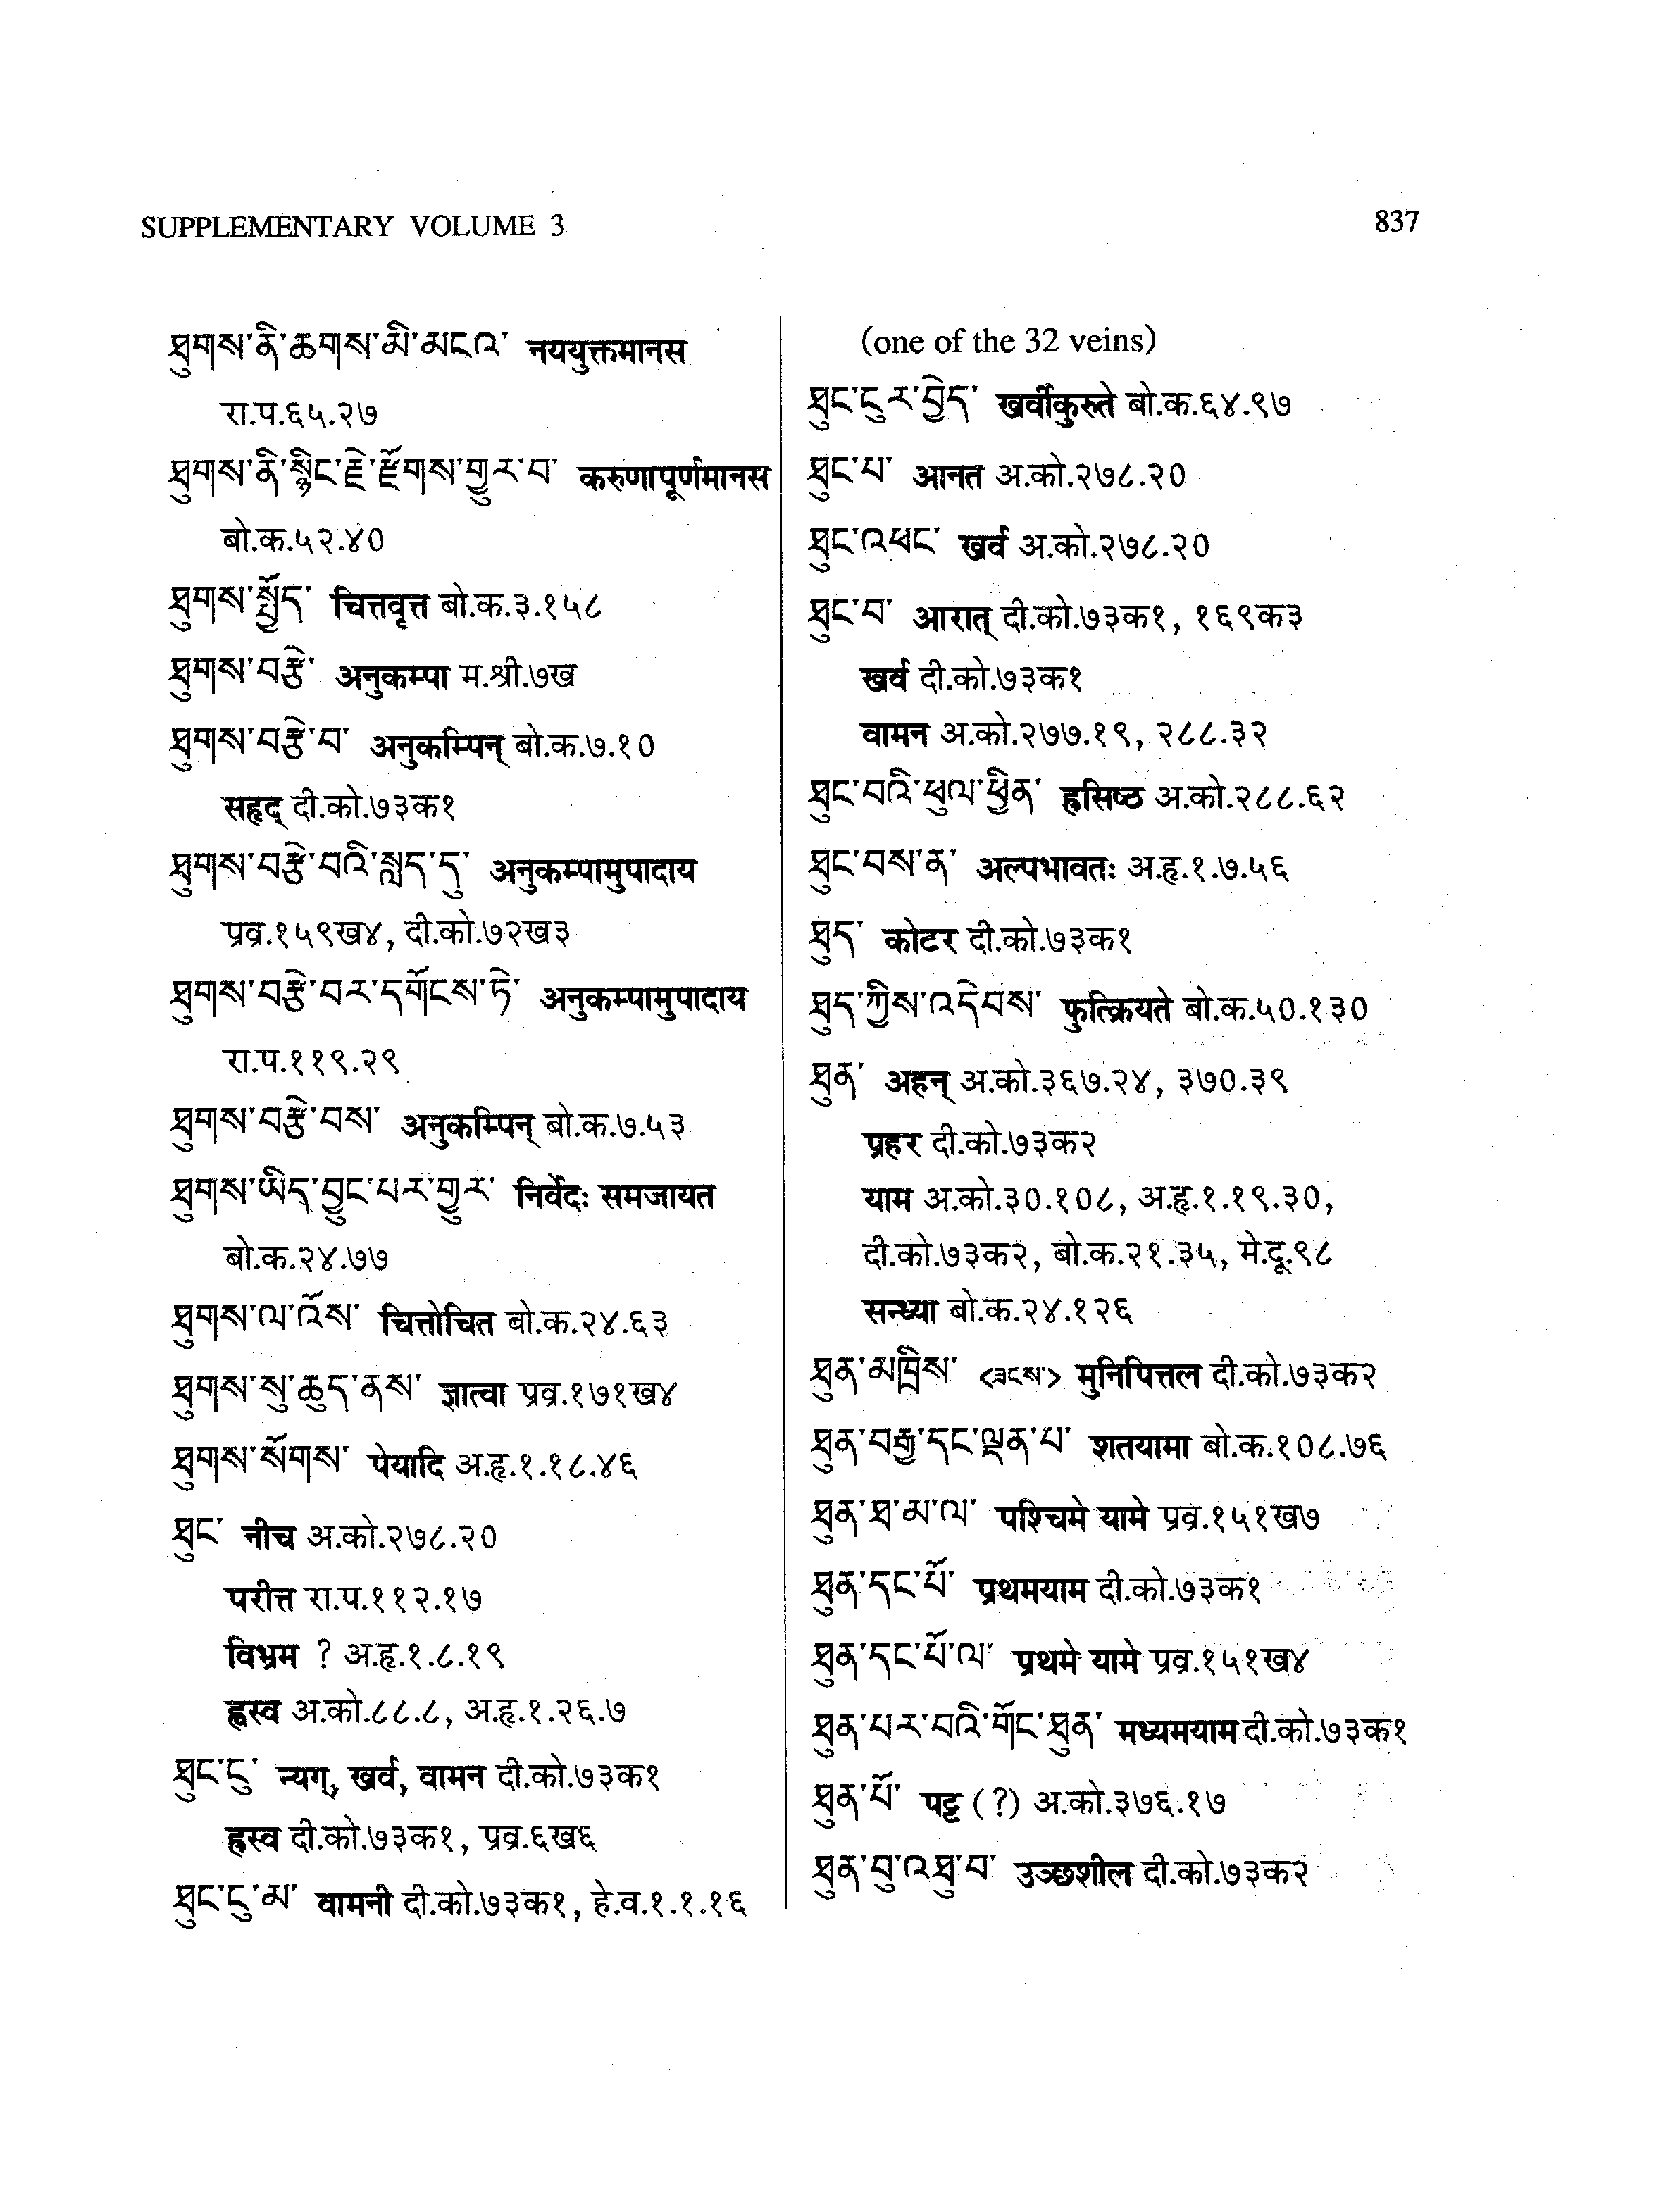 SUPPLEMENTARY VOLUME 3
837
ཐུགས་ནི་ཆགས་མི་མངའ་ नययुक्तमानस
रा.प.६५.२७
ཐུགས་ནི་སྙིང་རྗེ་རྫོགས་གྱུར་བ་ करुणापूर्णमानस
बो.क.५२.४०
ཐུགས་སྤྱོད་ चित्तवृत्त बो.क.३.१५८
ཐུགས་བརྩེ་ अनुकम्पा म.श्री.७ख
ཐུགས་བརྩེ་བ་ अनुकम्पिन् बो.क.७.१०
सहृद् दी.को.७३क१
ཐུགས་བརྩེ་བའི་སླད་དུ་ अनुकम्पामुपादाय
प्रव्र.१५९ख४, दी.को.७२ख३
ཐུགས་བརྩེ་བར་དགོངས་ཏེ་ अनुकम्पामुपादाय
रा.प.११९.२९
ཐུགས་བརྩེ་བས་ अनुकम्पिन् बो.क.७.५३
ཐུགས་ཡིད་བྱུང་པར་གྱུར་ निर्वेदः समजायत
बो.क.२४.७७
ཐུགས་ལ་འོས་ चित्तोचित बो.क.२४.६३
ཐུགས་སུ་ཆུད་ནས་ ज्ञात्वा प्रव्र.१७१ख४
ཐུགས་སོགས་ पेयादि अ.हृ.१.१८.४६
ཐུང་ नीच अ.को.२७८.२०
परीत्त रा.प.११२.१७
विभ्रम ? अ.हृ.१.८.१९
ह्रस्व अ.को.८८.८, अ.हृ.१.२६.७
ཐུང་ངུ་ न्यग्, खर्व, वामन दी.को.७३क१
ह्रस्व दी.को.७३क१, प्रव्र.६ख६
ཐུང་ངུ་མ་ वामनी दी.को.७३क१, हे.व.१.१.१६
(one of the 32 veins)
ཐུང་ངུར་བྱེད་ खर्वीकुरुते बो.क.६४.९७
ཐུང་པ་ आनत अ.को.२७८.२०
ཐུང་འཕང་ खर्व अ.को.२७८.२०
ཐུང་བ་ आरात् दी.को.७३क१, १६९क३
खर्व दी.को.७३क१
वामन अ.को.२७७.१९, २८८.३२
ཐུང་བའི་ཕུལ་ཕྱིན་ ह्रसिष्ठ अ.को.२८८.६२
ཐུང་བས་ན་ अल्पभावतः अ.हृ.१.७.५६
ཐུད་ कोटर दी.को.७३क१
ཐུད་ཀྱིས་འདེབས་ फुत्क्रियते बो.क.५०.१३०
ཐུན་ अहन् अ.को.३६७.२४, ३७०.३९
प्रहर दी.को.७३क२
याम अ.को.३०.१०८, अ.हृ.१.१९.३०,
दी.को.७३क२, बो.क.२१.३५, मे.दू.९८
सन्ध्या बो.क.२४.१२६
ཐུན་མཁྲིས་ <ཟངས་> मुनिपित्तल दी.को.७३क२
ཐུན་བརྒྱ་དང་ལྡན་པ་ शतयामा बो.क.१०८.७६
ཐུན་ཐ་མ་ལ་ पश्चिमे यामे प्रव्र.१५१ख७
ཐུན་དང་པོ་ प्रथमयाम दी.को.७३क१
ཐུན་དང་པོ་ལ་ प्रथमे यामे प्रव्र.१५१ख४
ཐུན་པར་བའི་གོང་ཐུན་ मध्यमयाम दी.को.७३क१
ཐུན་པོ་ पट्ट (?) अ.को.३७६.१७
ཐུན་བུ་འཐུ་བ་ उञ्छशील दी.को.७३क२